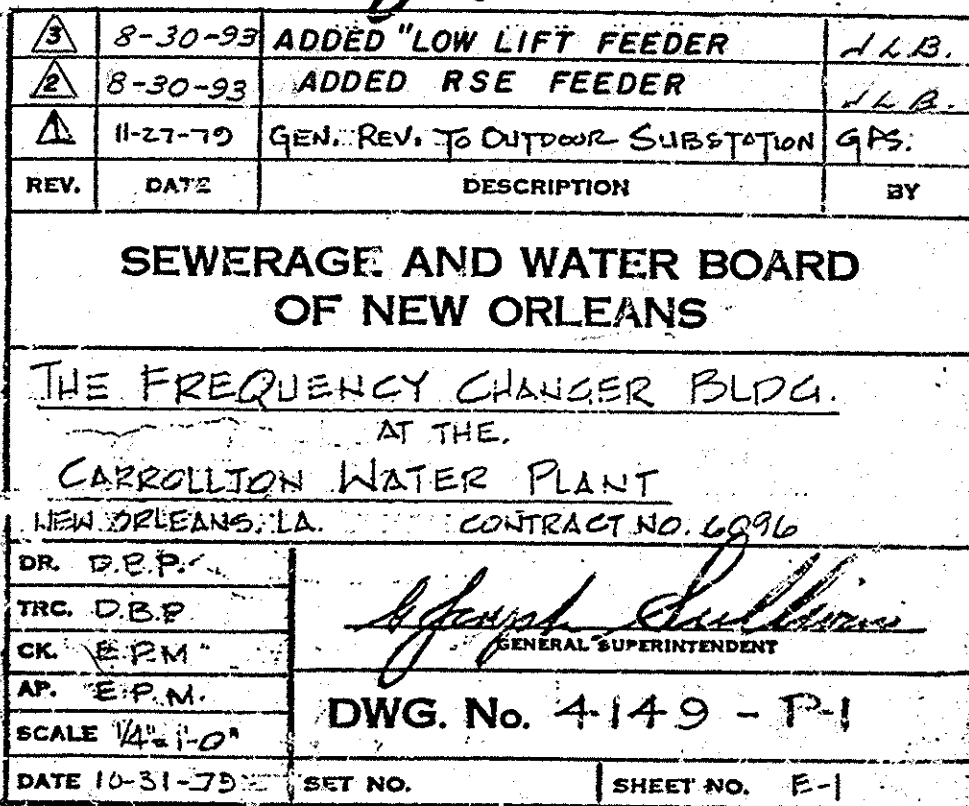 3 8-30-93 ADDED "LOW LIFT FEEDER J L B.
2 8-30-93 ADDED RSE FEEDER J L B.
1 11-27-79 GEN. REV. TO OUTDOOR SUBSTATION GPS.
REV. DATE DESCRIPTION BY
SEWERAGE AND WATER BOARD
OF NEW ORLEANS
THE FREQUENCY CHANGER BLDG.
AT THE.
CARROLLTON WATER PLANT
NEW ORLEANS, LA. CONTRACT NO. 6096
DR. D.B.P.
TRC. D.B.P
CK. E.P.M
AP. E.P.M.
SCALE 1/4"=1'-0"
DATE 10-31-79
G Joseph Sullivan
GENERAL SUPERINTENDENT
DWG. No. 4149 - P-1
SET NO. SHEET NO. E-1